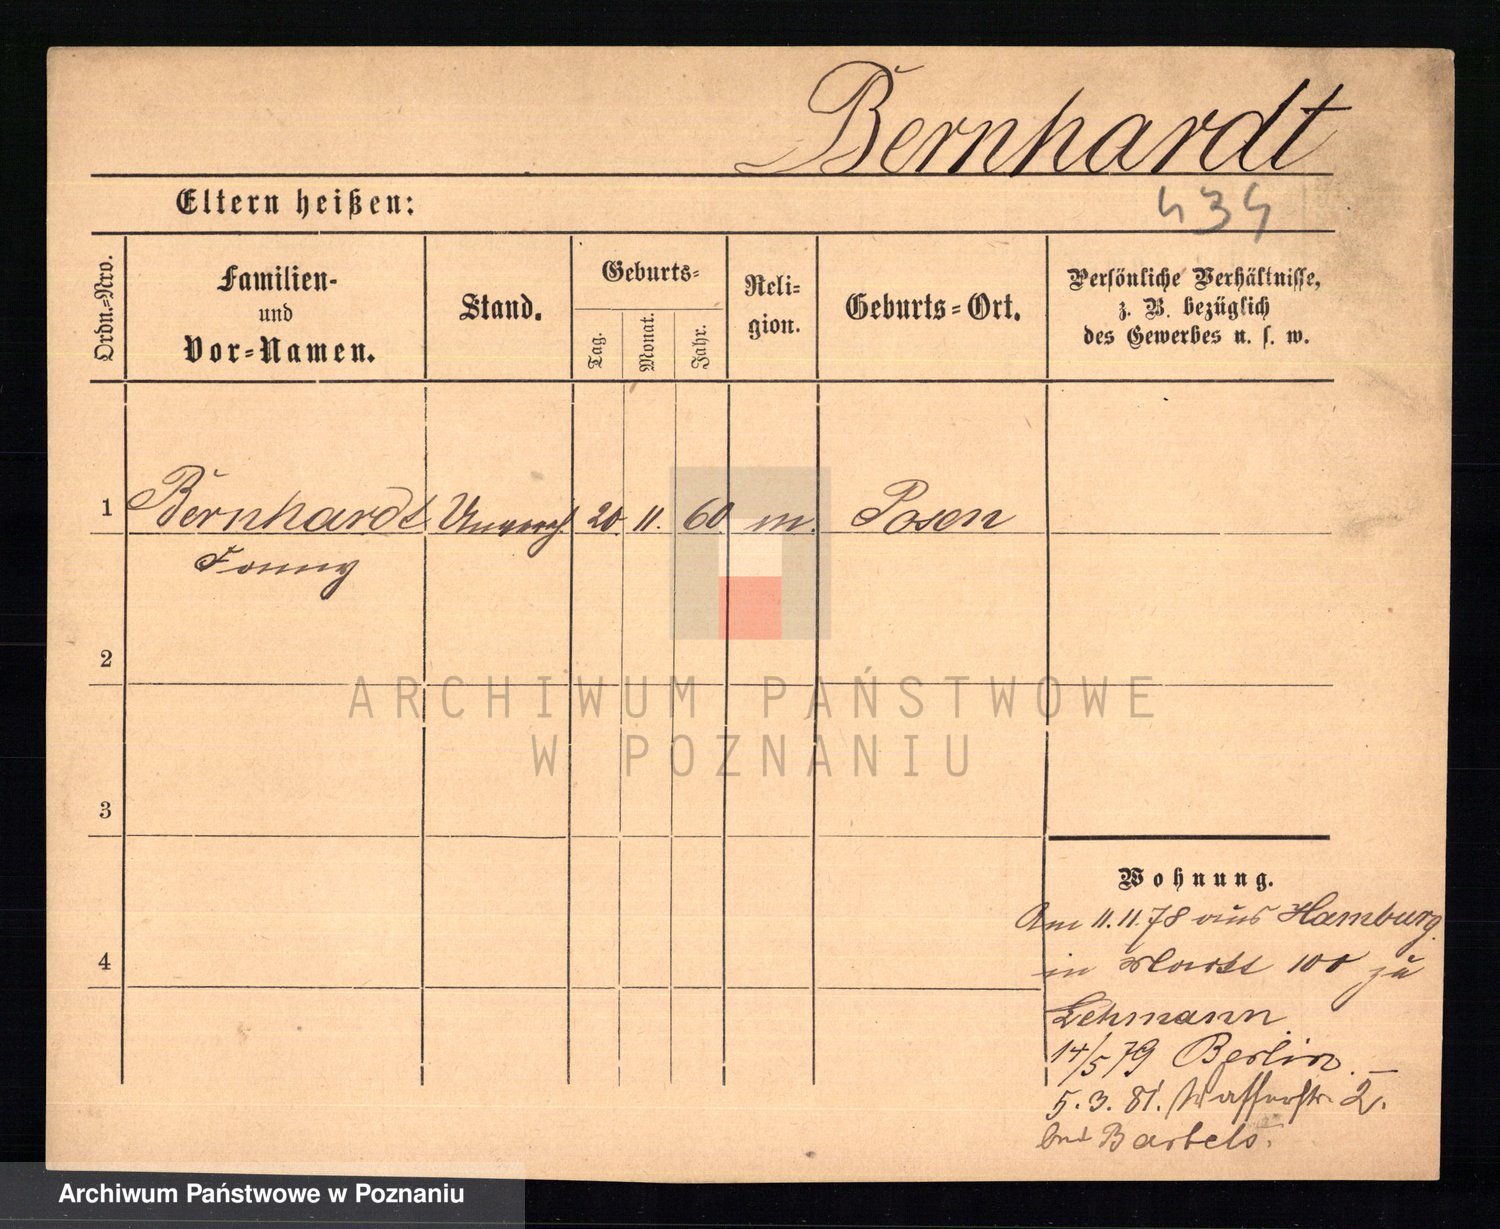 Bernhardt
Eltern heißen:
434
Ordn.-Nro.
Familien-
und
Vor-Namen.
Stand.
Geburts-
Tag.
Monat.
Jahr.
Reli-
gion.
Geburts-Ort.
Persönliche Verhältnisse,
z. B. bezüglich
des Gewerbes u. s. w.
1 Bernhardt Unvereh. 20 11. 60 m. Posen
Fanny
2
ARCHIWUM PAŃSTWOWE
W POZNANIU
3
Wohnung.
Am 11.11.78 aus Hamburg
4
in Markt 100 zu
Lehmann
14/5 79 Berlin. –
5.3.81. Wasserstr. 2.
bei Bartels.
Archiwum Państwowe w Poznaniu